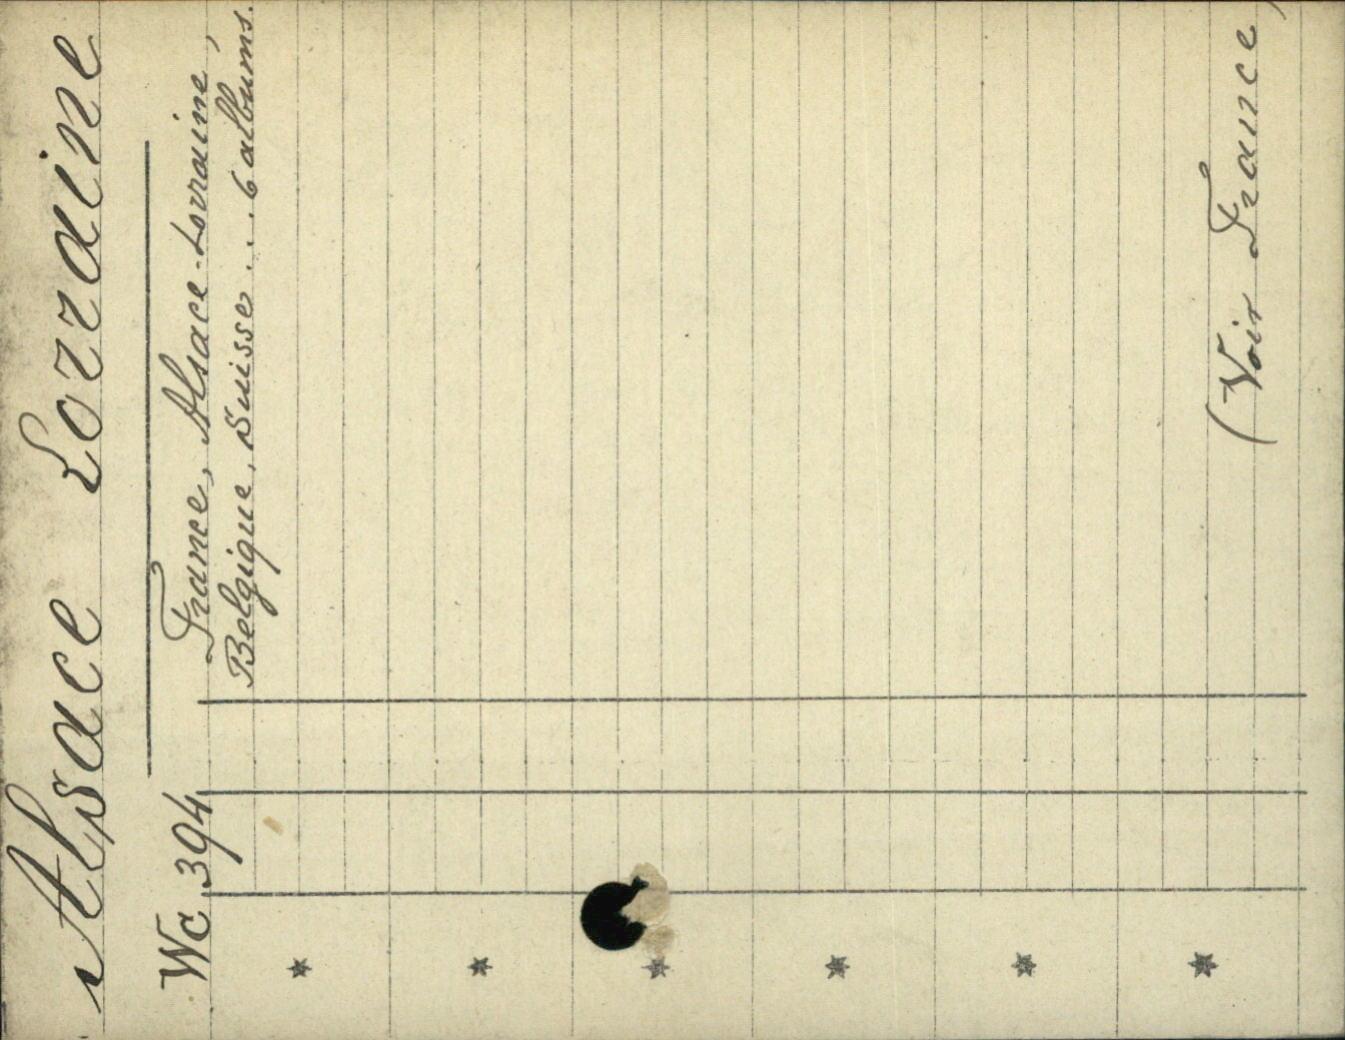 Alsace Lorraine
Wc 394 France, Alsace-Lorraine,
Belgique, Suisse ... 6 albums.
(Voir France)